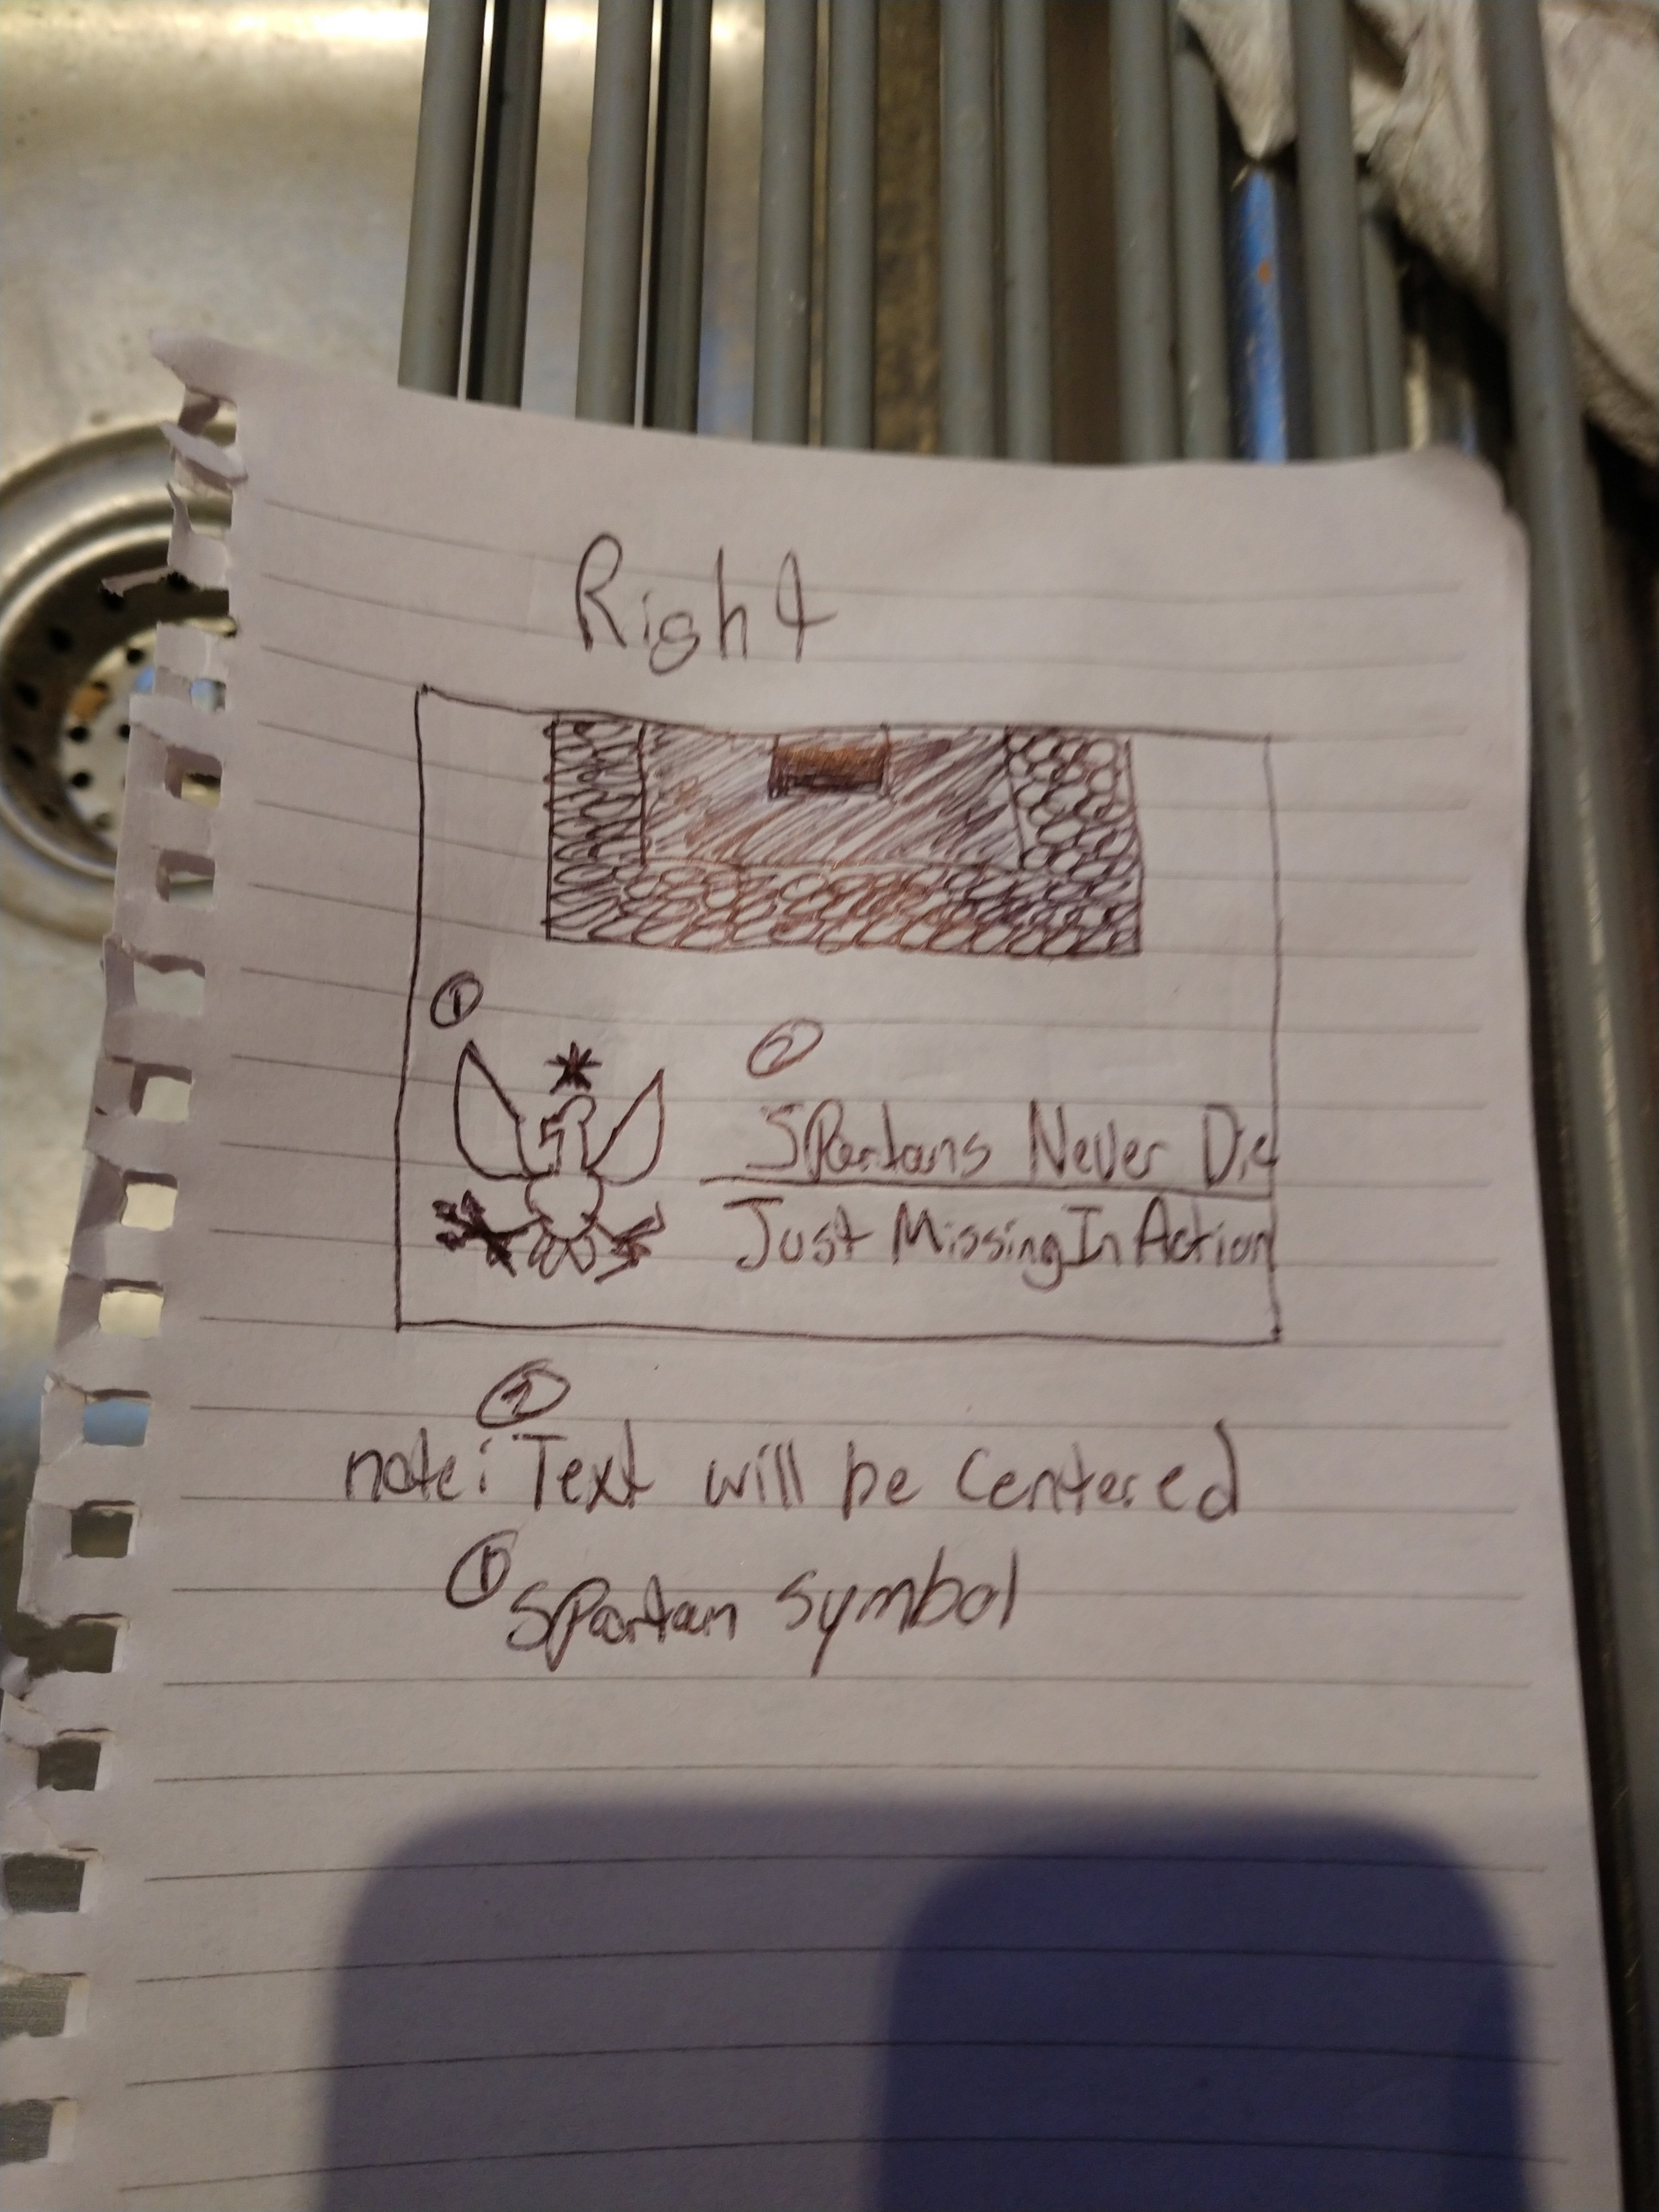 Right
①
②
Spartans Never Die
Just Missing In Action
②
note: Text will be centered
① Spartan symbol